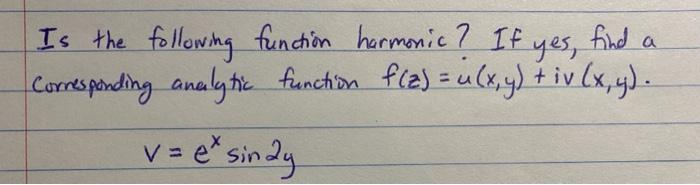 Is the following function harmonic? If yes, find a
corresponding analytic function f(z) = u(x,y) + iv(x,y).
v = e^x sin 2y